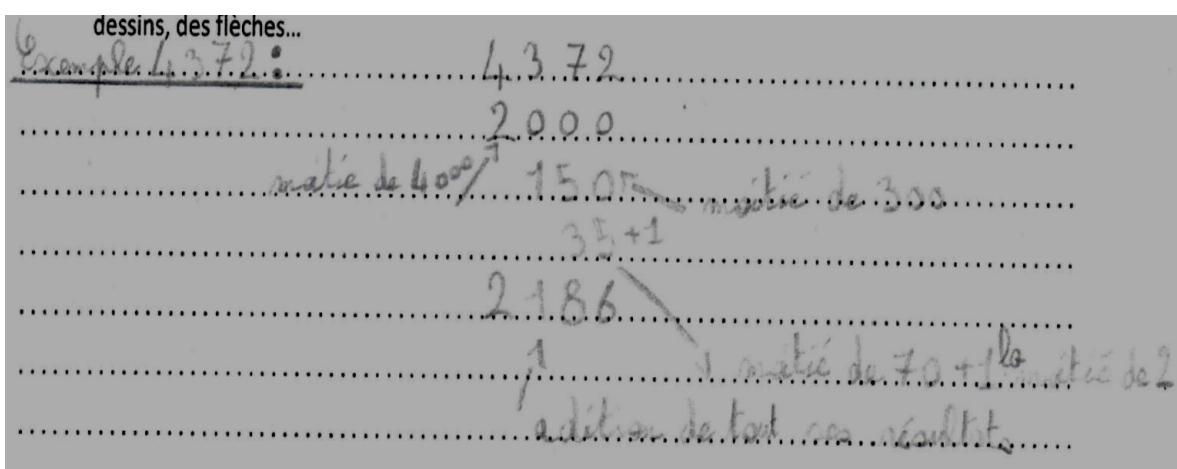 dessins, des flèches...
Exemple 4372 : 4372
2000
moitie de 4000 150 moitié de 300
35 +1
2186
moitié de 70 + 1 la moitié de 2
adition de tout ses résultats